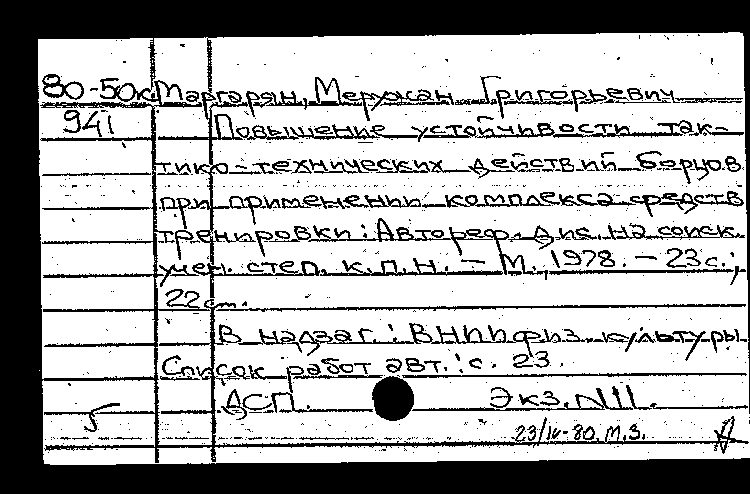 80-50к Маргарян, Меружан Григорьевич
941 Повышение устойчивости так-
тико-технических действий борцов
при применении комплекса средств
тренировки: Автореф. дис. на соиск.
учен. степ. к.п.н. – М., 1978. – 23 с.;
22 см.
В надзаг.: ВНИИ физ. культуры
Список работ авт.: с. 23.
ДСП. Экз. N11.
5
23/IV-80. М.З.